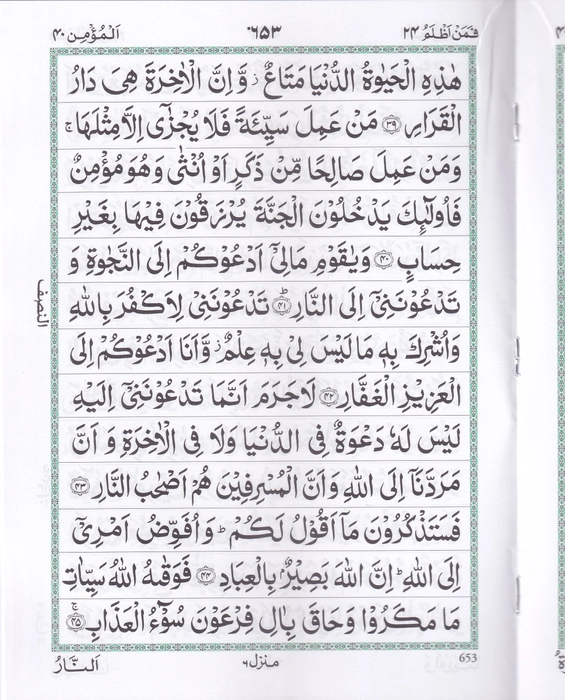 فَمَنْ اَظْلَمُ ۲۴
٦٥٣
اَلْمُؤْمِن ۴۰
هٰذِهِ الْحَيٰوةُ الدُّنْيَا مَتَاعٌ ؗ وَّ اِنَّ الْاٰخِرَةَ هِىَ دَارُ
الْقَرَارِ ﴿۳۹﴾ مَنْ عَمِلَ سَيِّئَةً فَلَا يُجْزٰٓى اِلَّا مِثْلَهَا ۚ
وَمَنْ عَمِلَ صَالِحًا مِّنْ ذَكَرٍ اَوْ اُنْثٰى وَهُوَ مُؤْمِنٌ
فَاُولٰٓئِكَ يَدْخُلُوْنَ الْجَنَّةَ يُرْزَقُوْنَ فِيْهَا بِغَيْرِ
حِسَابٍ ﴿۴۰﴾ وَيٰقَوْمِ مَالِىْٓ اَدْعُوْكُمْ اِلَى النَّجٰوةِ وَ
تَدْعُوْنَنِىْٓ اِلَى النَّارِ ؕ﴿۴۱﴾ تَدْعُوْنَنِىْ لِاَكْفُرَ بِاللّٰهِ
وَاُشْرِكَ بِهٖ مَا لَيْسَ لِىْ بِهٖ عِلْمٌ ؗ وَّاَنَا اَدْعُوْكُمْ اِلَى
الْعَزِيْزِ الْغَفَّارِ ﴿۴۲﴾ لَاجَرَمَ اَنَّمَا تَدْعُوْنَنِىْٓ اِلَيْهِ
لَيْسَ لَهٗ دَعْوَةٌ فِى الدُّنْيَا وَلَا فِى الْاٰخِرَةِ وَ اَنَّ
مَرَدَّنَآ اِلَى اللّٰهِ وَاَنَّ الْمُسْرِفِيْنَ هُمْ اَصْحٰبُ النَّارِ ﴿۴۳﴾
فَسَتَذْكُرُوْنَ مَآ اَقُوْلُ لَكُمْ ؕ وَاُفَوِّضُ اَمْرِىْٓ
اِلَى اللّٰهِ ؕ اِنَّ اللّٰهَ بَصِيْرٌۢ بِالْعِبَادِ ﴿۴۴﴾ فَوَقٰىهُ اللّٰهُ سَيِّاٰتِ
مَا مَكَرُوْا وَحَاقَ بِاٰلِ فِرْعَوْنَ سُوْٓءُ الْعَذَابِ ۚ﴿۴۵﴾
النصف
653
منزل ٦
اَلنَّارُ